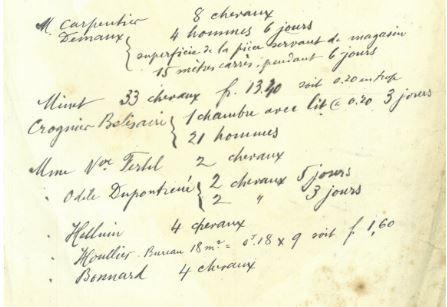 M. Carpentier 8 chevaux
Demaux { 4 hommes 6 jours
superficie de la pièce servant de magasin
15 mètres carrés, pendant 6 jours
Minet 33 chevaux fr. 13.40 soit 0.20 en trop
Crognier Belisaire { 1 chambre avec lit @ 0.20 3 jours
21 hommes
Mme Vve Fertel 2 chevaux
" Odile Dupontreué { 2 chevaux 5 jours
2 " 3 jours
" Helluin 4 chevaux
" Houllier - Bureau 18 m² = 0f.18 x 9 soit f 1,60
" Bonnard 4 chevaux